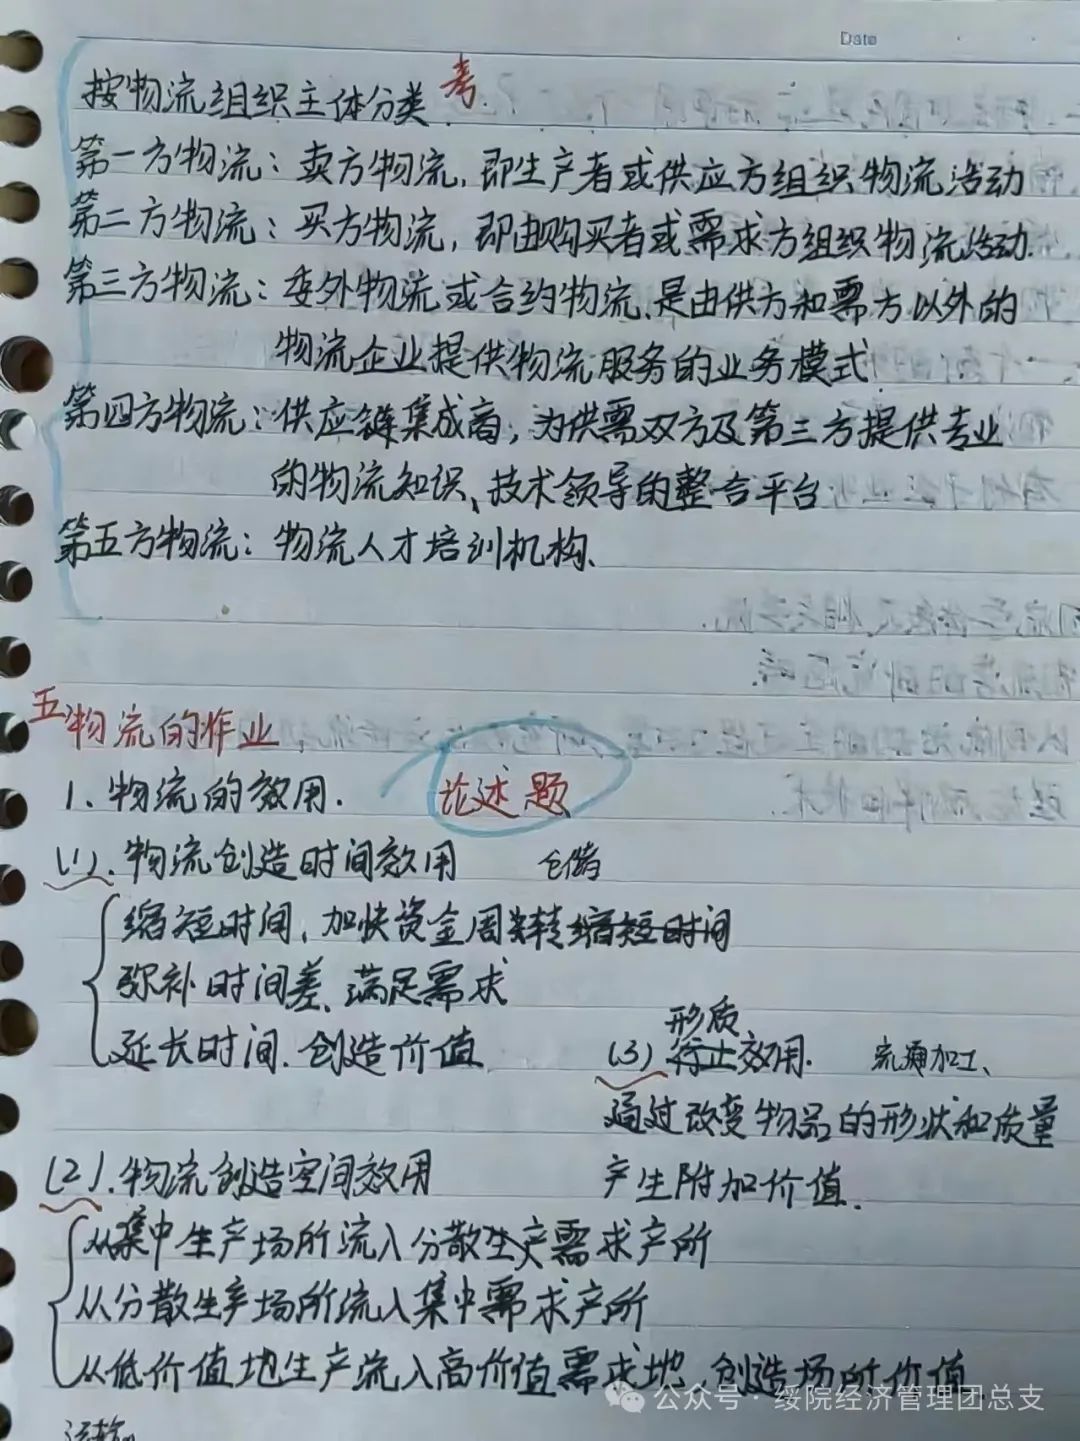 Date
按物流组织主体分类 考.
第一方物流：卖方物流，即生产者或供应方组织物流活动
第二方物流：买方物流，即由购买者或需求方组织物流活动.
第三方物流：委外物流或合约物流、是由供方和需方以外的
物流企业提供物流服务的业务模式
第四方物流：供应链集成商，为供需双方及第三方提供专业
的物流知识、技术领导的整合平台
第五方物流：物流人才培训机构、
五、物流的作业
1、物流的效用. 论述题
(1)、物流创造时间效用 仓储
缩短时间、加快资金周转缩短时间
弥补时间差、满足需求
延长时间、创造价值
形质
(3) 行止效用. 流通加工、
通过改变物品的形状和质量
产生附加价值.
(2)、物流创造空间效用
从集中生产场所流入分散生产需求产所
从分散生产场所流入集中需求产所
从低价值地生产流入高价值需求地、创造场所价值
运输
公众号·绥院经济管理团总支